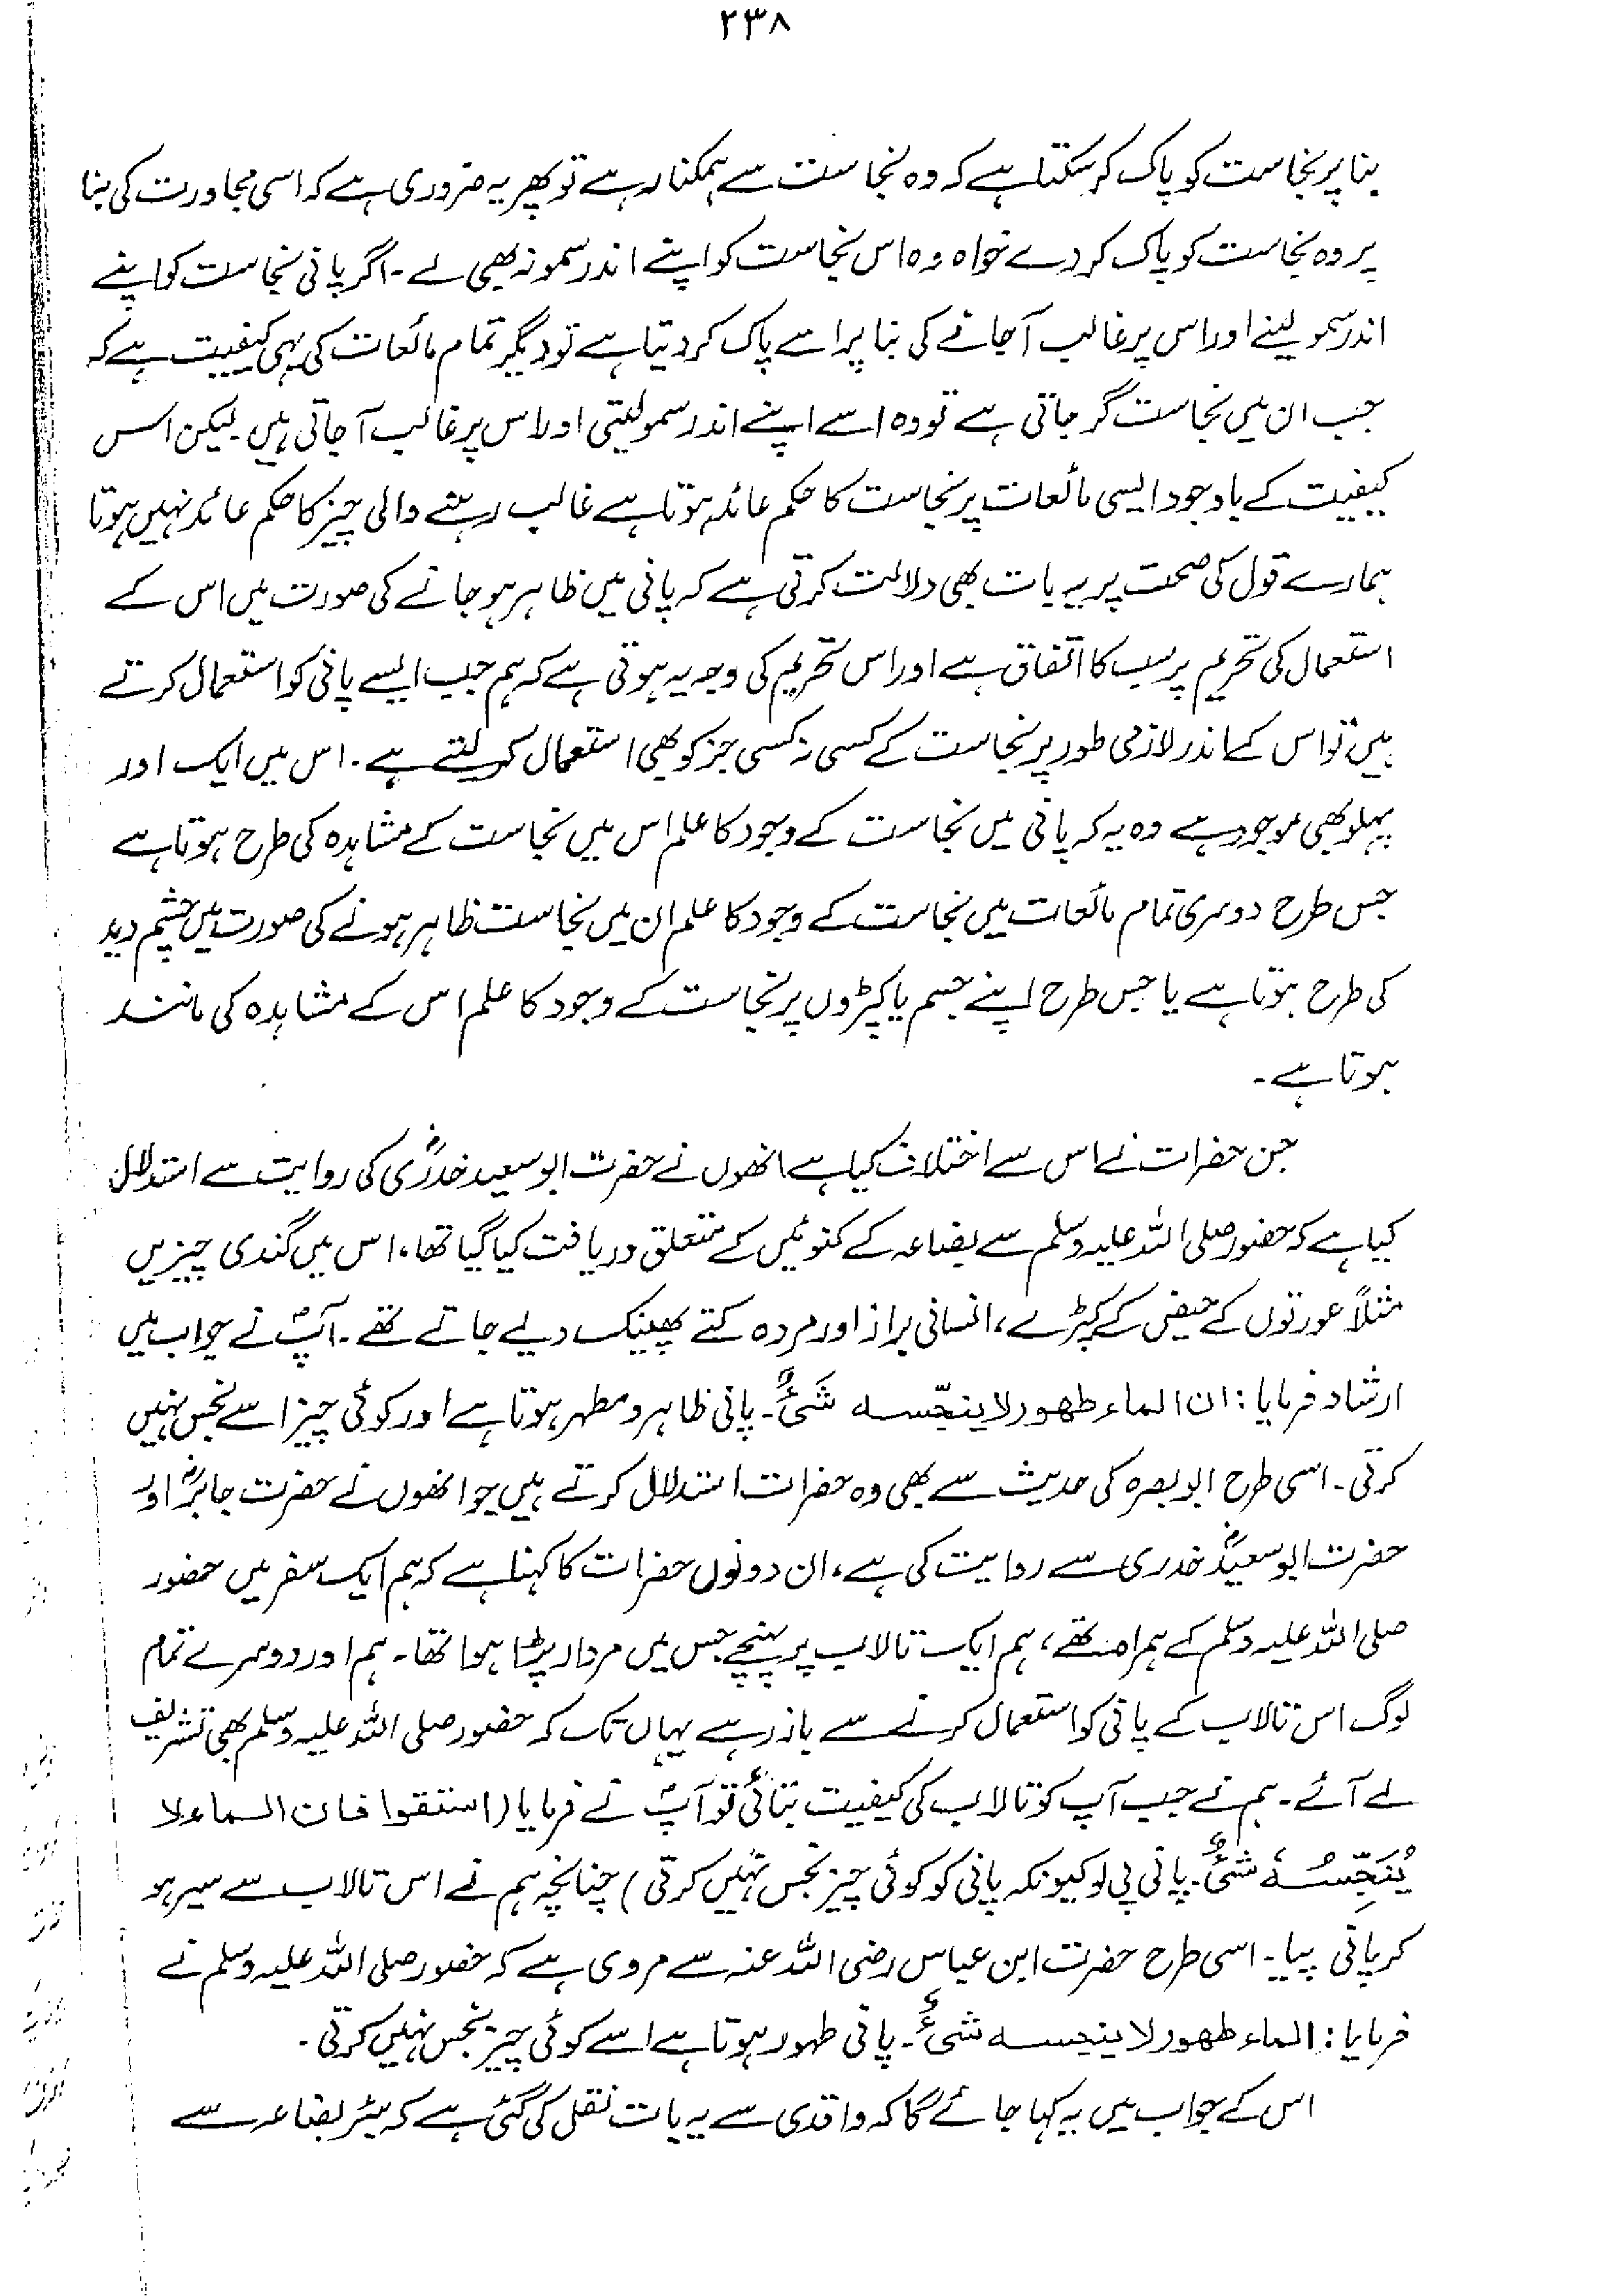 ۲۳۸
بنا پر نجاست کو پاک کر سکتا ہے کہ وہ نجاست سے ہمکنار ہے تو پھر یہ ضروری ہے کہ اسی مجاورت کی بنا
پر وہ نجاست کو پاک کر دے خواہ وہ اس نجاست کو اپنے اندر سمو نہ بھی لے۔ اگر پانی نجاست کو اپنے
اندر سمو لینے اور اس پر غالب آجانے کی بنا پر اسے پاک کر دیتا ہے تو دیگر تمام مائعات کی یہی کیفیت ہے کہ
جب ان میں نجاست گر جاتی ہے تو وہ اسے اپنے اندر سمو لیتی اور اس پر غالب آجاتی ہیں۔ لیکن اس
کیفیت کے باوجود ایسی مائعات پر نجاست کا حکم عائد ہوتا ہے غالب رہنے والی چیز کا حکم عائد نہیں ہوتا
ہمارے قول کی صحت پر یہ بات بھی دلالت کرتی ہے کہ پانی میں ظاہر ہو جانے کی صورت میں اس کے
استعمال کی تحریم پر سب کا اتفاق ہے اور اس تحریم کی وجہ یہ ہوتی ہے کہ ہم جب ایسے پانی کو استعمال کرتے
ہیں تو اس کے اندر لازمی طور پر نجاست کے کسی نہ کسی جز کو بھی استعمال کر لیتے ہے۔ اس میں ایک اور
پہلو بھی موجود ہے وہ یہ کہ پانی میں نجاست کے وجود کا علم اس میں نجاست کے مشاہدہ کی طرح ہوتا ہے
جس طرح دوسری تمام مائعات میں نجاست کے وجود کا علم ان میں نجاست ظاہر ہونے کی صورت میں چشم دید
کی طرح ہوتا ہے یا جس طرح اپنے جسم یا کپڑوں پر نجاست کے وجود کا علم اس کے مشاہدہ کی مانند
ہوتا ہے۔
جن حضرات نے اس سے اختلاف کیا ہے انھوں نے حضرت ابو سعید خدریؓ کی روایت سے استدلال
کیا ہے کہ حضور صلی اللہ علیہ وسلم سے بضاعہ کے کنوئیں کے متعلق دریافت کیا گیا تھا، اس میں گندی چیزیں
مثلاً عورتوں کے حیض کے کپڑے، انسانی براز اور مردہ کتے پھینک دیے جاتے تھے۔ آپؐ نے جواب میں
ارشاد فرمایا: ان الماء طھور لا ینجّسہ شَیٌٔ۔ پانی ظاہر و مطہر ہوتا ہے اور کوئی چیز اسے نجس نہیں
کرتی۔ اسی طرح ابو بصرہ کی حدیث سے بھی وہ حضرات استدلال کرتے ہیں جو انھوں نے حضرت جابرؓ اور
حضرت ابو سعیدؓ خدری سے روایت کی ہے، ان دونوں حضرات کا کہنا ہے کہ ہم ایک سفر میں حضور
صلی اللہ علیہ وسلم کے ہمراہ تھے، ہم ایک تالاب پر پہنچے جس میں مردار پڑا ہوا تھا۔ ہم اور دوسرے تمام
لوگ اس تالاب کے پانی کو استعمال کرنے سے باز رہے یہاں تک کہ حضور صلی اللہ علیہ وسلم بھی تشریف
لے آئے۔ ہم نے جب آپ کو تالاب کی کیفیت بتائی تو آپؐ نے فرمایا (استقوا فان الماء لا
یُنَجِّسُہٗ شیٌٔ۔ پانی پی لو کیونکہ پانی کو کوئی چیز نجس نہیں کرتی) چنانچہ ہم نے اس تالاب سے سیر ہو
کر پانی پیا۔ اسی طرح حضرت ابن عباس رضی اللہ عنہ سے مروی ہے کہ حضور صلی اللہ علیہ وسلم نے
فرمایا: الماء طھور لا ینجسہ شیٌٔ۔ پانی طہور ہوتا ہے اسے کوئی چیز نجس نہیں کرتی۔
اس کے جواب میں یہ کہا جائے گا کہ واقدی سے یہ بات نقل کی گئی ہے کہ بئر بضاعہ سے